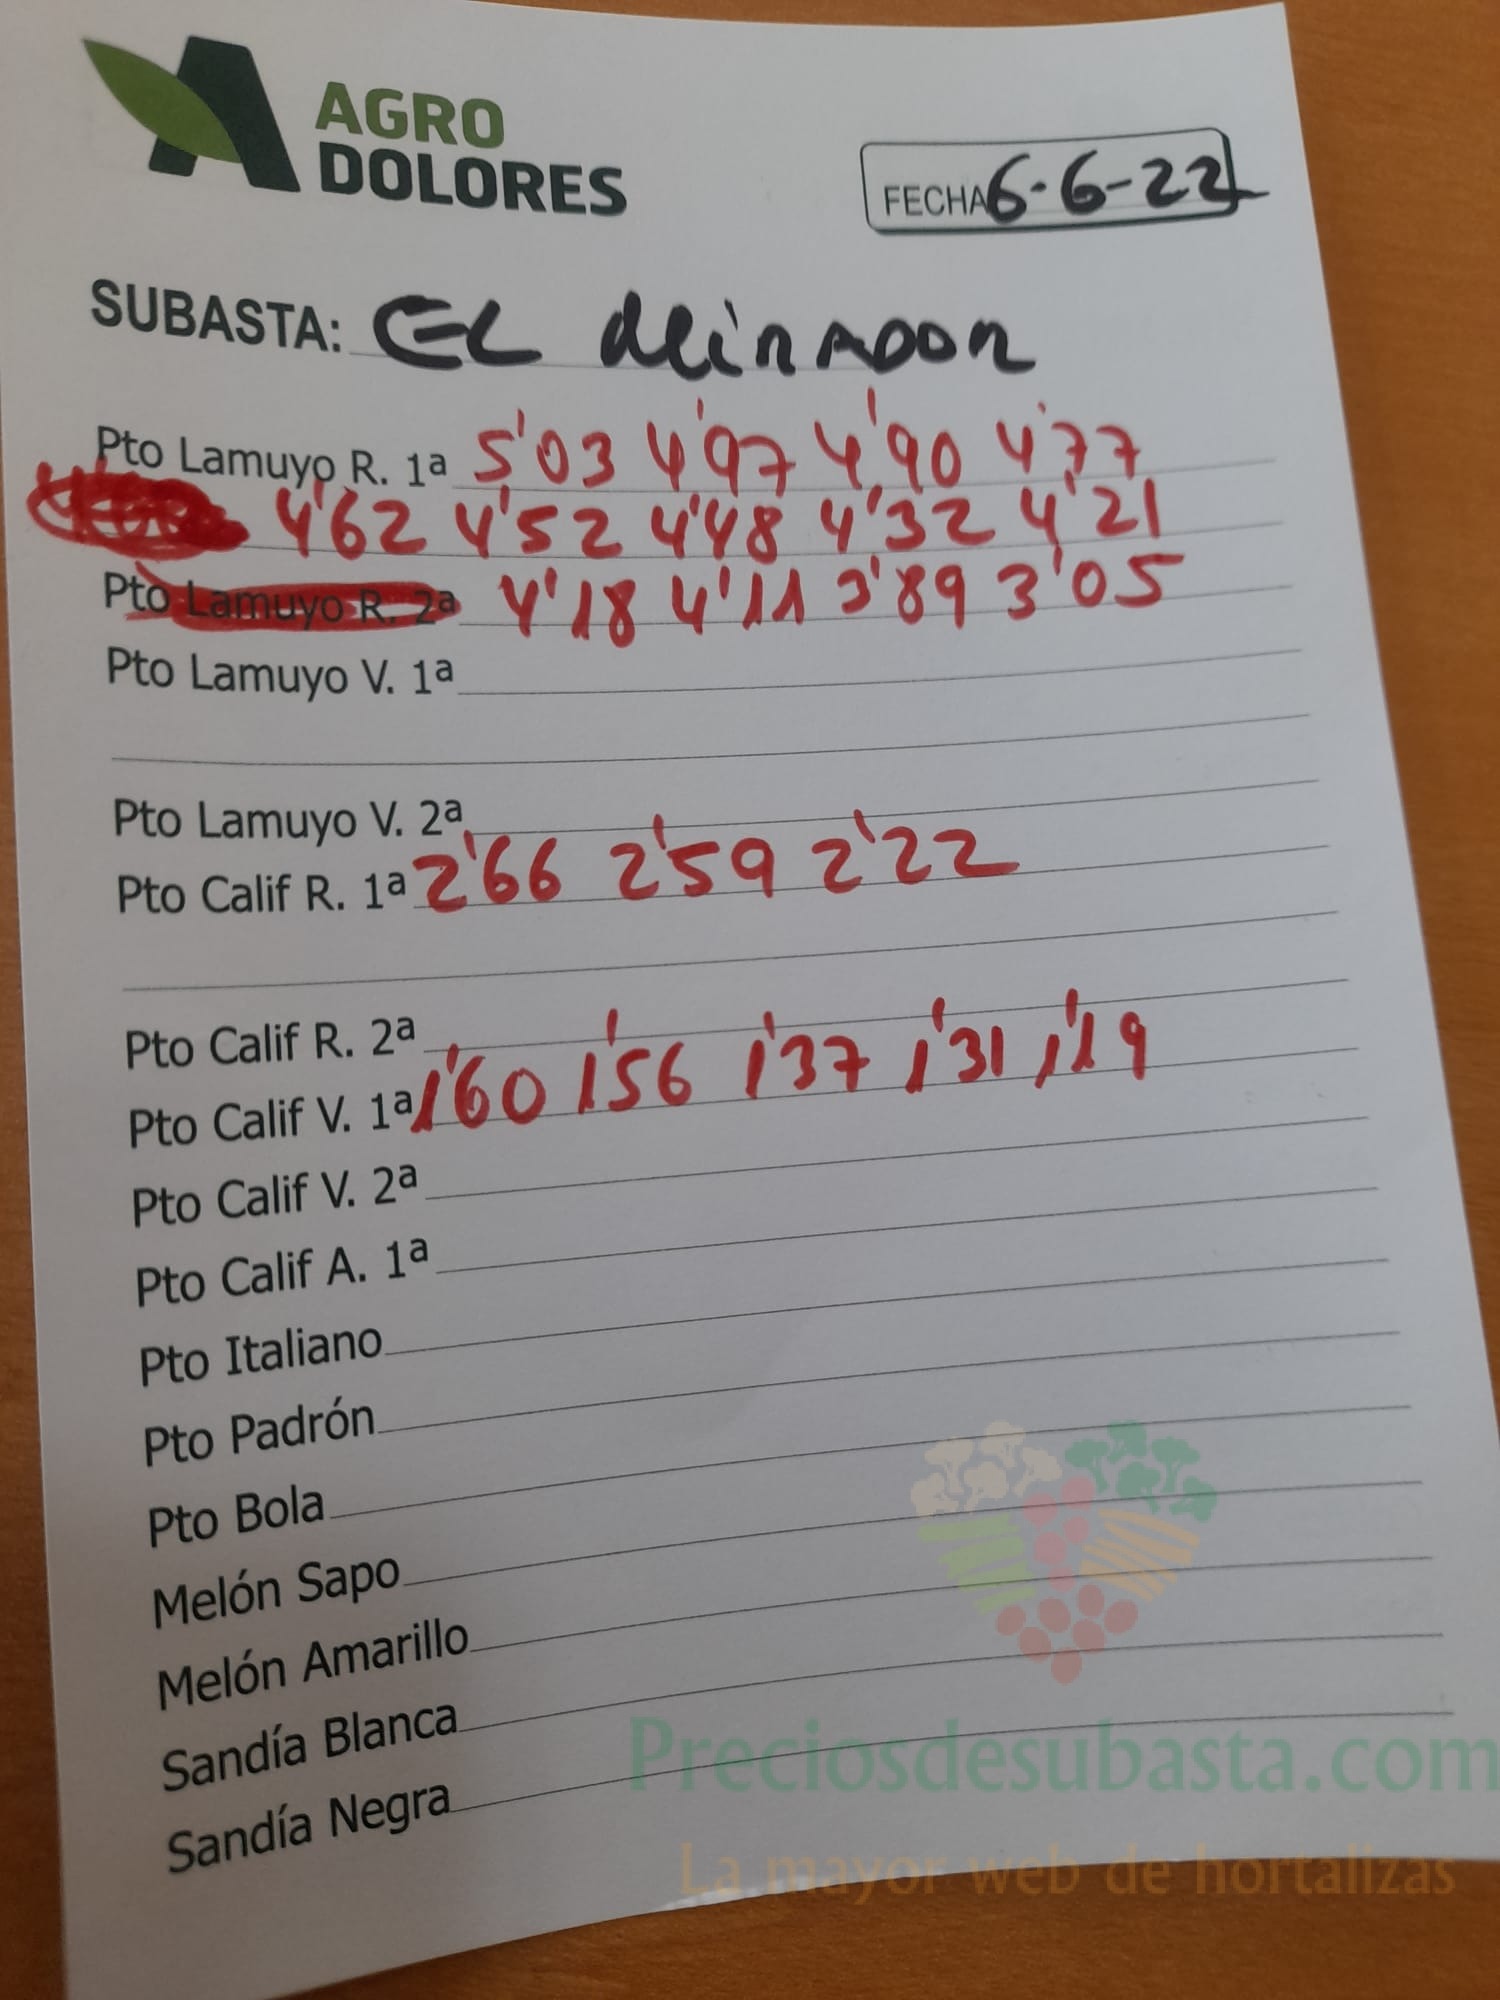 AGRO
DOLORES
FECHA 6-6-22
SUBASTA: EL
Pto Lamuyo R. 1ª 5'03 4'97 4'90 4'77
4'62 4'52 4'48 4'32 4'21
Pto Lamuyo R. 2ª 4'18 4'11 3'89 3'05
Pto Lamuyo V. 1ª
Pto Lamuyo V. 2ª
Pto Calif R. 1ª 2'66 2'59 2'22
Pto Calif R. 2ª
Pto Calif V. 1ª 1'60 1'56 1'37 1'31 1'19
Pto Calif V. 2ª
Pto Calif A. 1ª
Pto Italiano
Pto Padrón
Pto Bola
Melón Sapo
Melón Amarillo
Sandía Blanca
Sandía Negra
Preciosdesubasta.com
La mayor web de hortalizas